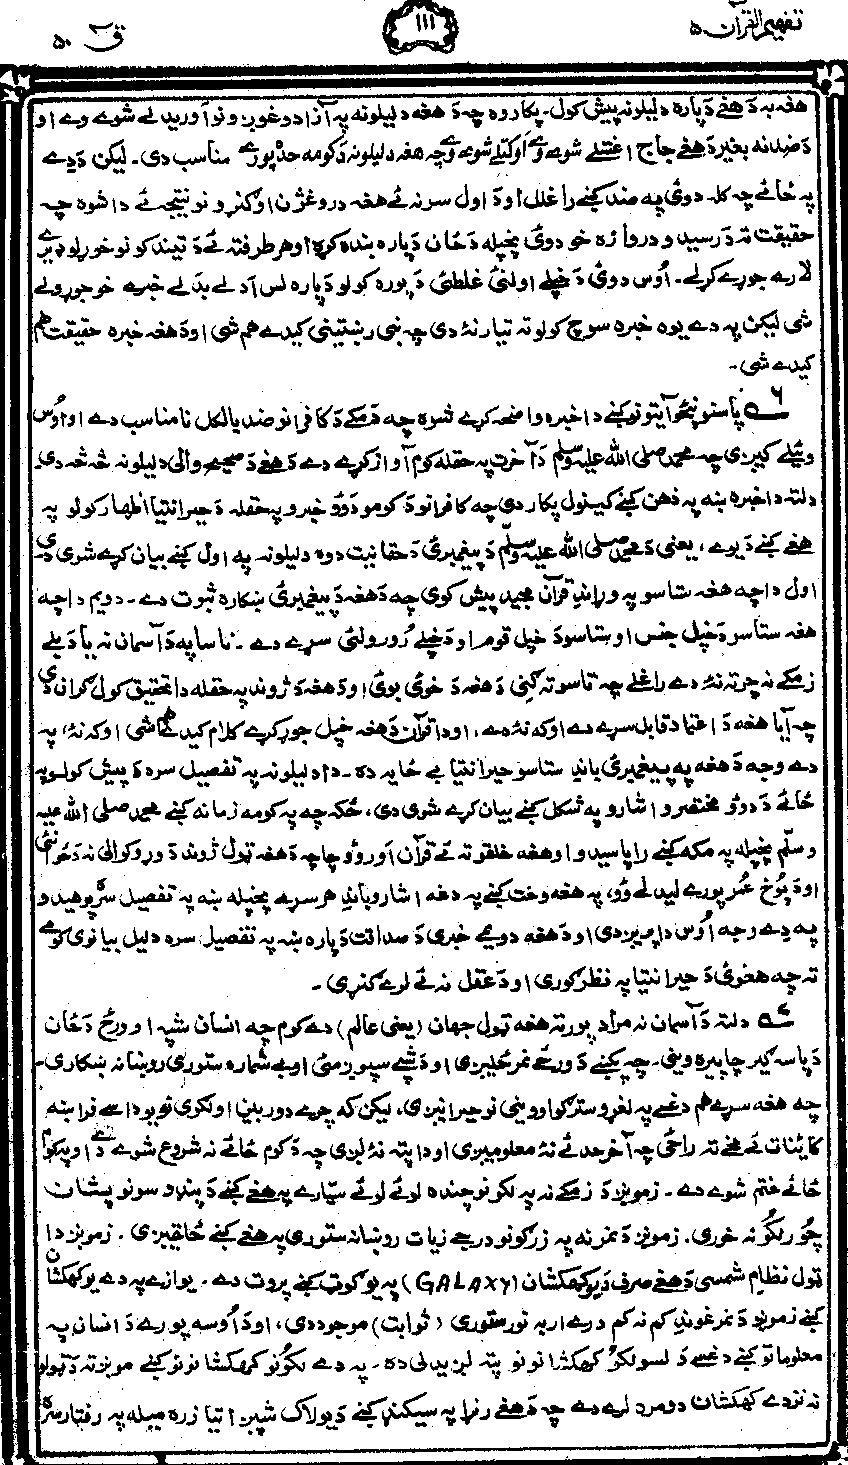 تفهیم القرآن ۵
۱۱۱
ق ۵۰
هغه به دَ هغے دَپاره دلیلونه پیش کول۔ پکار وه چه دَ هغه دلیلونه په آزادو غوږونو آوریدلے شوے وے او
دَ ضد نه بغیر دَ هغے جاج اغستلے شوے وے او کتلے شوے وے چه هغه دلیلونه دَ کومه حده پورے مناسب دی۔ لیکن دَ دے
په ځائے چه کله دوئ په ضد کښے راغلل او دَ اول سر نه ئے هغه دروغژن اوګنړو نو نتیجه ئے دا شوه چه
حقیقت ته دَ رسیدو دروازه خو دوئ پخپله دَ ځان دَپاره بنده کړه او هر طرف ته ئے دَ تیندکونو خوړلو ډیرے
لارے جوړے کړلے۔ اُوس دوئ دَ خپلے اولنئ غلطئ دَ پوره کولو دَپاره لس اَدلے بدلے خبرے خو جوړولے
شی لیکن په دے یوه خبره سوچ کولو ته تیار نهٔ دی چه نبی رښتینی کیدے هم شی او دَ هغه خبره حقیقت هم
کیدے شی۔
۶ـے پاسنو پنځو آیتونو کښے دا خبره واضحه کړے شوه چه دَ مکے دَ کافرانو ضد بالکل نامناسب دے او اُوس
وئیلے کیږی چه محمد صلی الله علیه وسلم دَ آخرت په حقله کوم آواز کړے دے دَ هغے دَ صحیح والی دلیلونه څه څه دی۔
دلته دا خبره ښه په ذهن کښے کینول پکار دی چه کافرانو دَ کومو دوؤ خبرو په حقله دَ حیرانتیا اظهار کولو په
هغے کښے دَ یوے، یعنی دَ محمد صلی الله علیه وسلم دَ پیغمبرئ دَ حقانیت دوه دلیلونه په اول کښے بیان کړے شوی دی
اول دا چه هغه ستاسو په وړاندے قرآن مجید پیش کوی چه دَ هغه دَ پیغمبرئ ښکاره ثبوت دے۔ دویم دا چه
هغه ستاسو دَ خپل جنس او ستاسو دَ خپل قوم او دَ خپلے رُورولئ سړے دے۔ ناساپه دَ آسمان نه یا دَ بلے
زمکے نه چرته نهٔ دے راغلے چه تاسو ته ګنی دَ هغه دَ خوئ بوئ او دَ هغه دَ ژوند په حقله دا تحقیق کول ګران دی
چه آیا هغه دَ اعتماد قابل سړے دے او که نهٔ دے، او دا قرآن دَ هغه خپل جوړ کړے کلام کیدے هم شی او که نهٔ، په
دے وجه دَ هغه په پیغمبرئ باندے ستاسو حیرانتیا بے ځایه ده۔ دا دلیلونه په تفصیل سره دَ پیش کولو په
ځائے دَ دوؤ مختصرو اشارو په شکل کښے بیان کړے شوی دی، ځکه چه په کومه زمانه کښے محمد صلی الله علیه
وسلم پخپله په مکه کښے راپاسیدو او هغه خلقو ته ئے قرآن اورؤو چا چه دَ هغه ټول ژوند دَ وړوکوالی نه دَ ځوانئ
او دَ پوخ عُمر پورے لیدلے وُو، په هغه وخت کښے په دغه اشارو باندے هر سړے پخپله ښه په تفصیل سره پوهیدو
په دے وجه اُوس دا پریږدی او دَ هغه دویمے خبری دَ صداقت دَپاره ښه په تفصیل سره دلیل بیانوی کومے
ته چه هغوئ دَ حیرانتیا په نظر ګوری او دَ عقل نه ئے لرے ګنړی۔
۷ـے دلته دَ آسمان نه مراد پورته هغه ټول جهان (یعنی عالم) دے کوم چه انسان شپه او ورځ دَ ځان
دَ پاسه ګیر چاپیره وینی۔ چه پکښے دَ ورځے نمر ځلیږی او دَ شپے سپوږمئ او بے شماره ستوری روښانه ښکاری۔
چه هغه سړے هم دغسے په لغړو سترګو اووینی نو حیرانیږی، لیکن که چرے دوربین اولګوی نو یو داسے فراخه
کائینات ئے مخے ته راځی چه آخر حد ئے نهٔ معلومیږی او دا پته نهٔ لږی چه دَ کوم ځائے نه شروع شوے دے او په کوم
ځائے ختم شوے دے۔ زمونږ دَ زمکے نه په لکونو چنده لوئے لوئے سیارے په هغے کښے دَ پنډوسونو پشان
چورلګونه خوری۔ زمونږ دَ نمر نه په زرګونو درجے زیات روښانه ستوری په هغے کښے ځلیږی۔ زمونږ دا
ټول نظام شمسی دَ هغے صرف دَ یو کهکشان (GALAXY) په یو ګوټ کښے پروت دے۔ یوازے په دے یو کهکشان
کښے زمونږ دَ نمر غوندے کم نه کم درے اربه نور ستوری (ثوابت) موجود دی، او دَ اُوسه پورے دَ انسان په
معلوماتو کښے دغسے دَ لسو لکو کهکشانونو پته لږیدلی ده۔ په دے لکونو کهکشانونو کښے مونږ ته دَ ټولو
نه نزدے کهکشان دومره لرے دے چه دَ هغے رنړا په سیکنډ کښے دَ یو لاک شپږ اتیا زره میله په رفتار سره